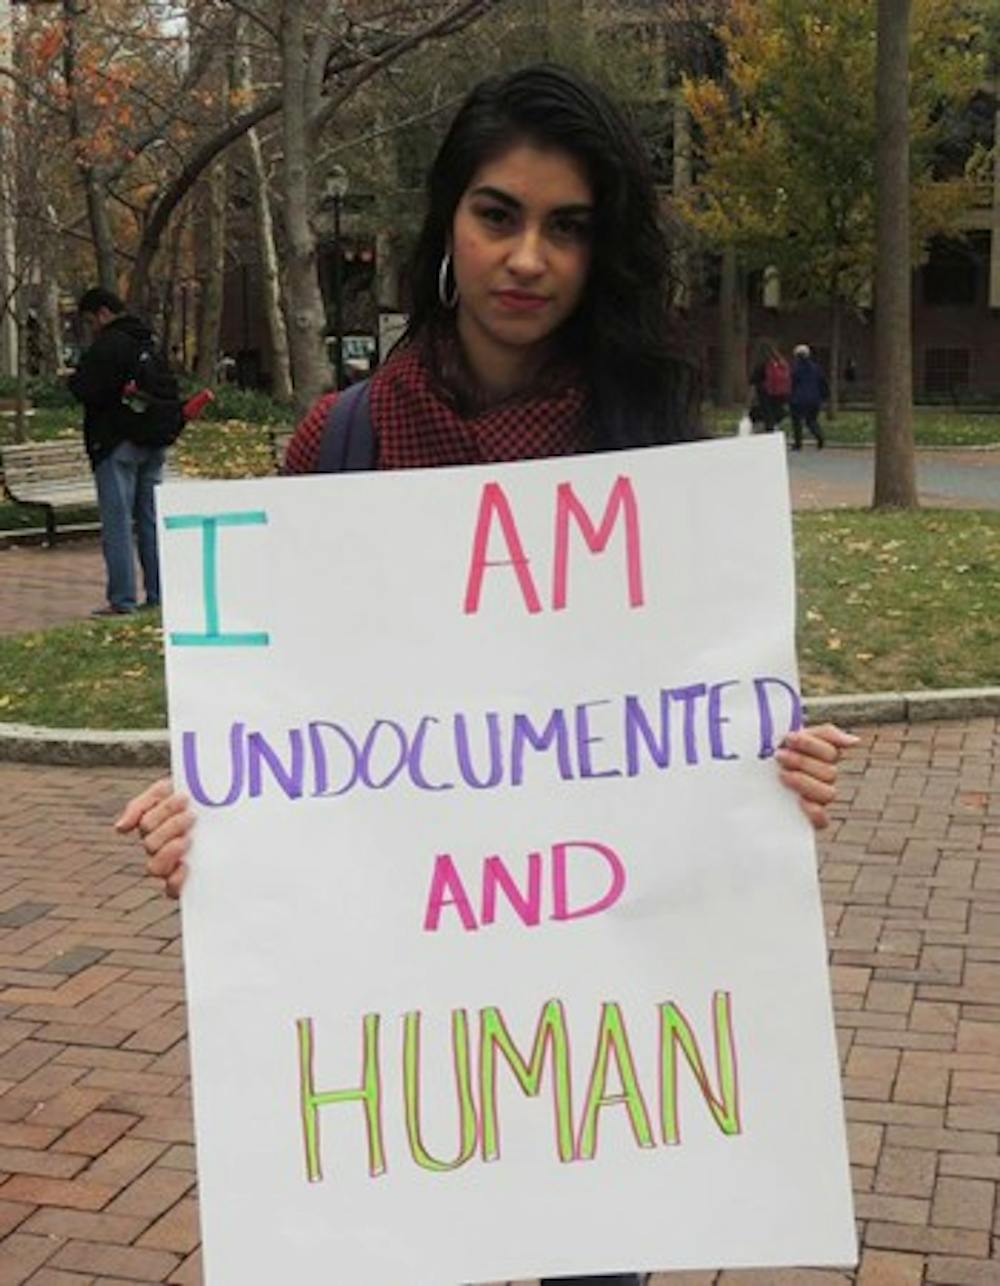 I AM
UNDOCUMENTED
AND
HUMAN